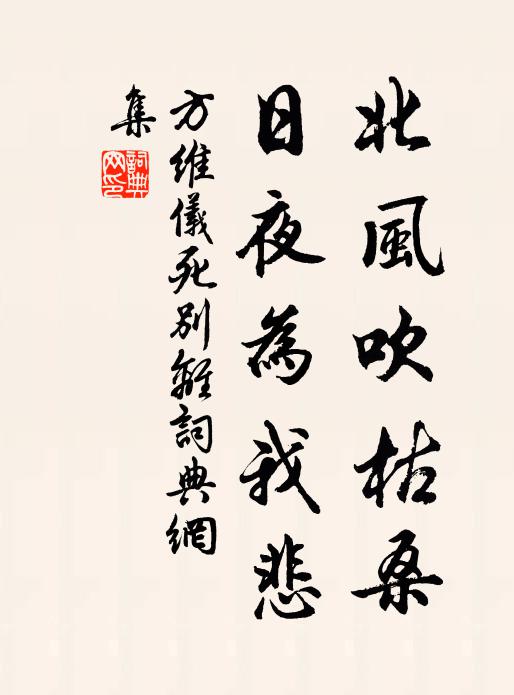 北風吹枯桑
日夜為我悲
方維儀死別離詞典網
集
詞典網印